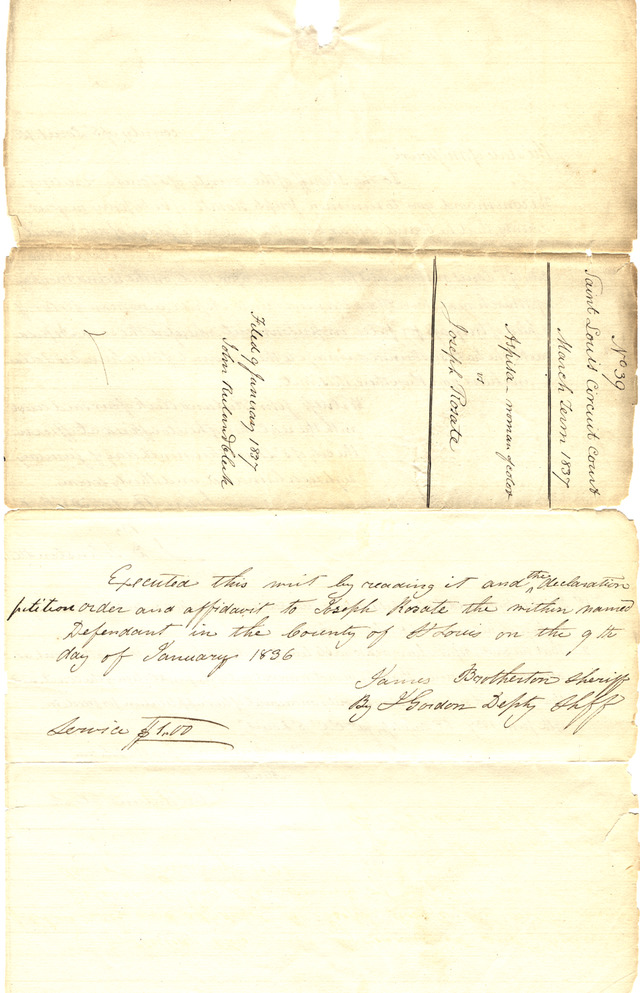 No 39
Saint Louis Circuit Court
March Term 1837
Aspisa - woman of color
vs
Joseph Rozate
Filed 9 January 1837
John Ruland Clerk
Executed this writ by reading it and the declaration
petition order and affidavit to Joseph Rozate the within named
Defendant in the County of St Louis on the 9th
day of January 1836
James Brotherton Sheriff
By J Gordon Depty Shff
Service $1.00